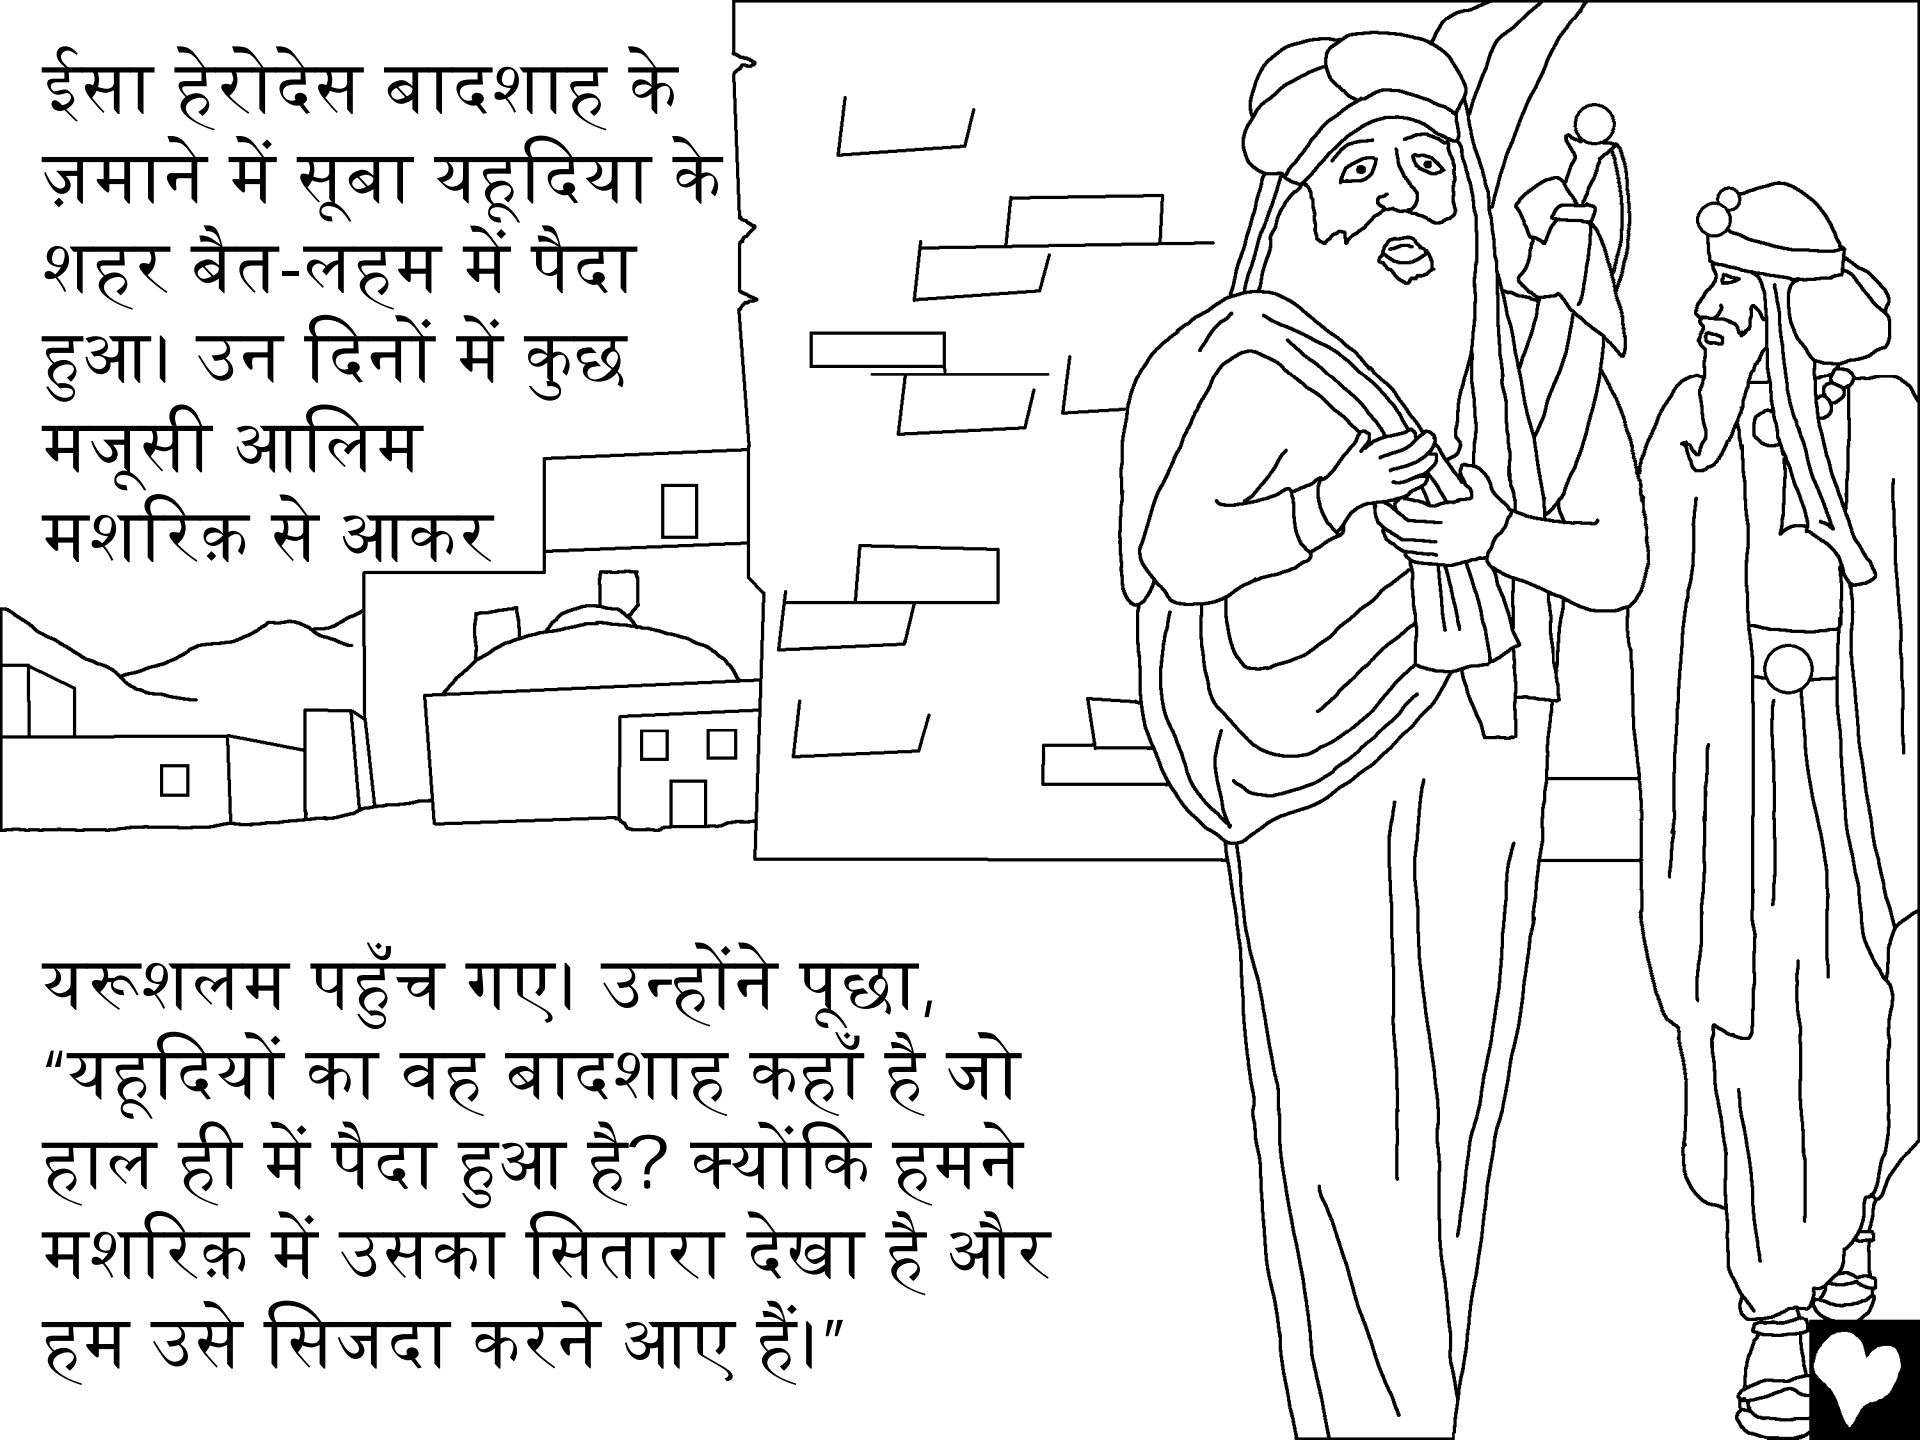 ईसा हेरोदेस बादशाह के
ज़माने में सूबा यहूदिया के
शहर बैत-लहम में पैदा
हुआ। उन दिनों में कुछ
मजूसी आलिम
मशरिक़ से आकर
यरूशलम पहुँच गए। उन्होंने पूछा,
“यहूदियों का वह बादशाह कहाँ है जो
हाल ही में पैदा हुआ है? क्योंकि हमने
मशरिक़ में उसका सितारा देखा है और
हम उसे सिजदा करने आए हैं।”